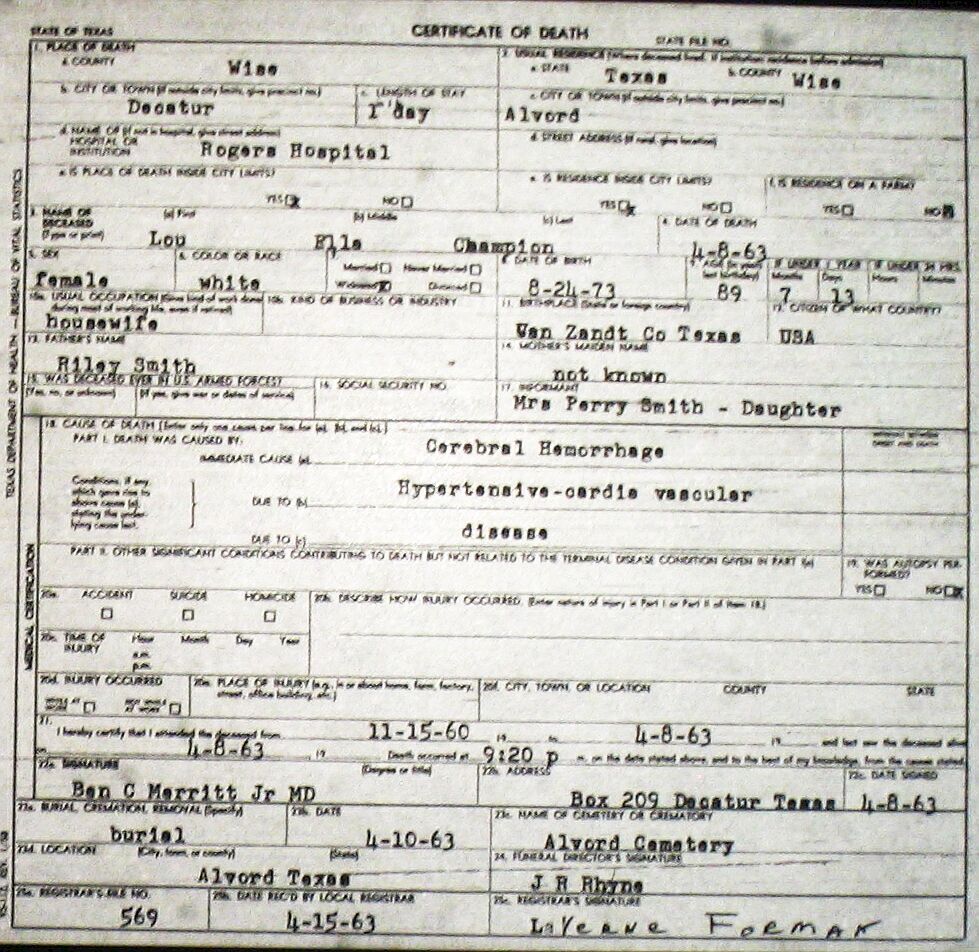 STATE OF TEXAS CERTIFICATE OF DEATH STATE FILE NO.
1. PLACE OF DEATH 2. USUAL RESIDENCE (Where deceased lived. If institution: residence before admission)
a. COUNTY Wise a. STATE Texas b. COUNTY Wise
b. CITY OR TOWN (If outside city limits, give precinct no.) c. LENGTH OF STAY c. CITY OR TOWN (If outside city limits, give precinct no.)
Decatur 1 day Alvord
d. NAME OF (If not in hospital, give street address) d. STREET ADDRESS (If rural, give location)
HOSPITAL OR
INSTITUTION Rogers Hospital
e. IS PLACE OF DEATH INSIDE CITY LIMITS? e. IS RESIDENCE INSIDE CITY LIMITS? f. IS RESIDENCE ON A FARM?
YES x NO YES x NO YES NO
3. NAME OF DECEASED (Type or print) (a) First (b) Middle (c) Last 4. DATE OF DEATH
Lou Ella Champion 4-8-63
5. SEX 6. COLOR OR RACE 7. Married Never Married 8. DATE OF BIRTH 9. AGE (In years last birthday) IF UNDER 1 YEAR IF UNDER 24 HRS.
Widowed x Divorced Months Days Hours Minutes
female white 8-24-73 89 7 13
10a. USUAL OCCUPATION (Give kind of work done during most of working life, even if retired) 10b. KIND OF BUSINESS OR INDUSTRY 11. BIRTHPLACE (State or foreign country) 12. CITIZEN OF WHAT COUNTRY?
housewife Van Zandt Co Texas USA
13. FATHER'S NAME 14. MOTHER'S MAIDEN NAME
Riley Smith not known
15. WAS DECEASED EVER IN U.S. ARMED FORCES? 16. SOCIAL SECURITY NO. 17. INFORMANT
(Yes, no, or unknown) (If yes, give war or dates of service) Mrs Perry Smith - Daughter
18. CAUSE OF DEATH [Enter only one cause per line for (a), (b), and (c).] INTERVAL BETWEEN ONSET AND DEATH
PART I. DEATH WAS CAUSED BY:
IMMEDIATE CAUSE (a) Cerebral Hemorrhage
Conditions, if any, which gave rise to above cause (a), stating the underlying cause last.
DUE TO (b) Hypertensive-cardie vascular
DUE TO (c) disease
PART II. OTHER SIGNIFICANT CONDITIONS CONTRIBUTING TO DEATH BUT NOT RELATED TO THE TERMINAL DISEASE CONDITION GIVEN IN PART I(a) 19. WAS AUTOPSY PERFORMED?
YES NO x
20a. ACCIDENT SUICIDE HOMICIDE 20b. DESCRIBE HOW INJURY OCCURRED. (Enter nature of injury in Part I or Part II of Item 18.)
20c. TIME OF INJURY Hour Month Day Year
a.m.
p.m.
20d. INJURY OCCURRED 20e. PLACE OF INJURY (e.g., in or about home, farm, factory, street, office building, etc.) 20f. CITY, TOWN, OR LOCATION COUNTY STATE
WHILE AT WORK NOT WHILE AT WORK
21. I hereby certify that I attended the deceased from 11-15-60 19 to 4-8-63 19 and last saw the deceased alive
on 4-8-63 19 Death occurred at 9:20 p m. on the date stated above, and to the best of my knowledge, from the causes stated.
22a. SIGNATURE (Degree or title) 22b. ADDRESS 22c. DATE SIGNED
Ben C Merritt Jr MD Box 209 Decatur Texas 4-8-63
23a. BURIAL, CREMATION, REMOVAL (Specify) 23b. DATE 23c. NAME OF CEMETERY OR CREMATORY
burial 4-10-63 Alvord Cemetery
23d. LOCATION (City, town, or county) (State) 24. FUNERAL DIRECTOR'S SIGNATURE
Alvord Texas J R Rhyne
25a. REGISTRAR'S FILE NO. 25b. DATE REC'D BY LOCAL REGISTRAR 25c. REGISTRAR'S SIGNATURE
569 4-15-63 LaVerne Forman
TEXAS DEPARTMENT OF HEALTH — BUREAU OF VITAL STATISTICS
MEDICAL CERTIFICATION